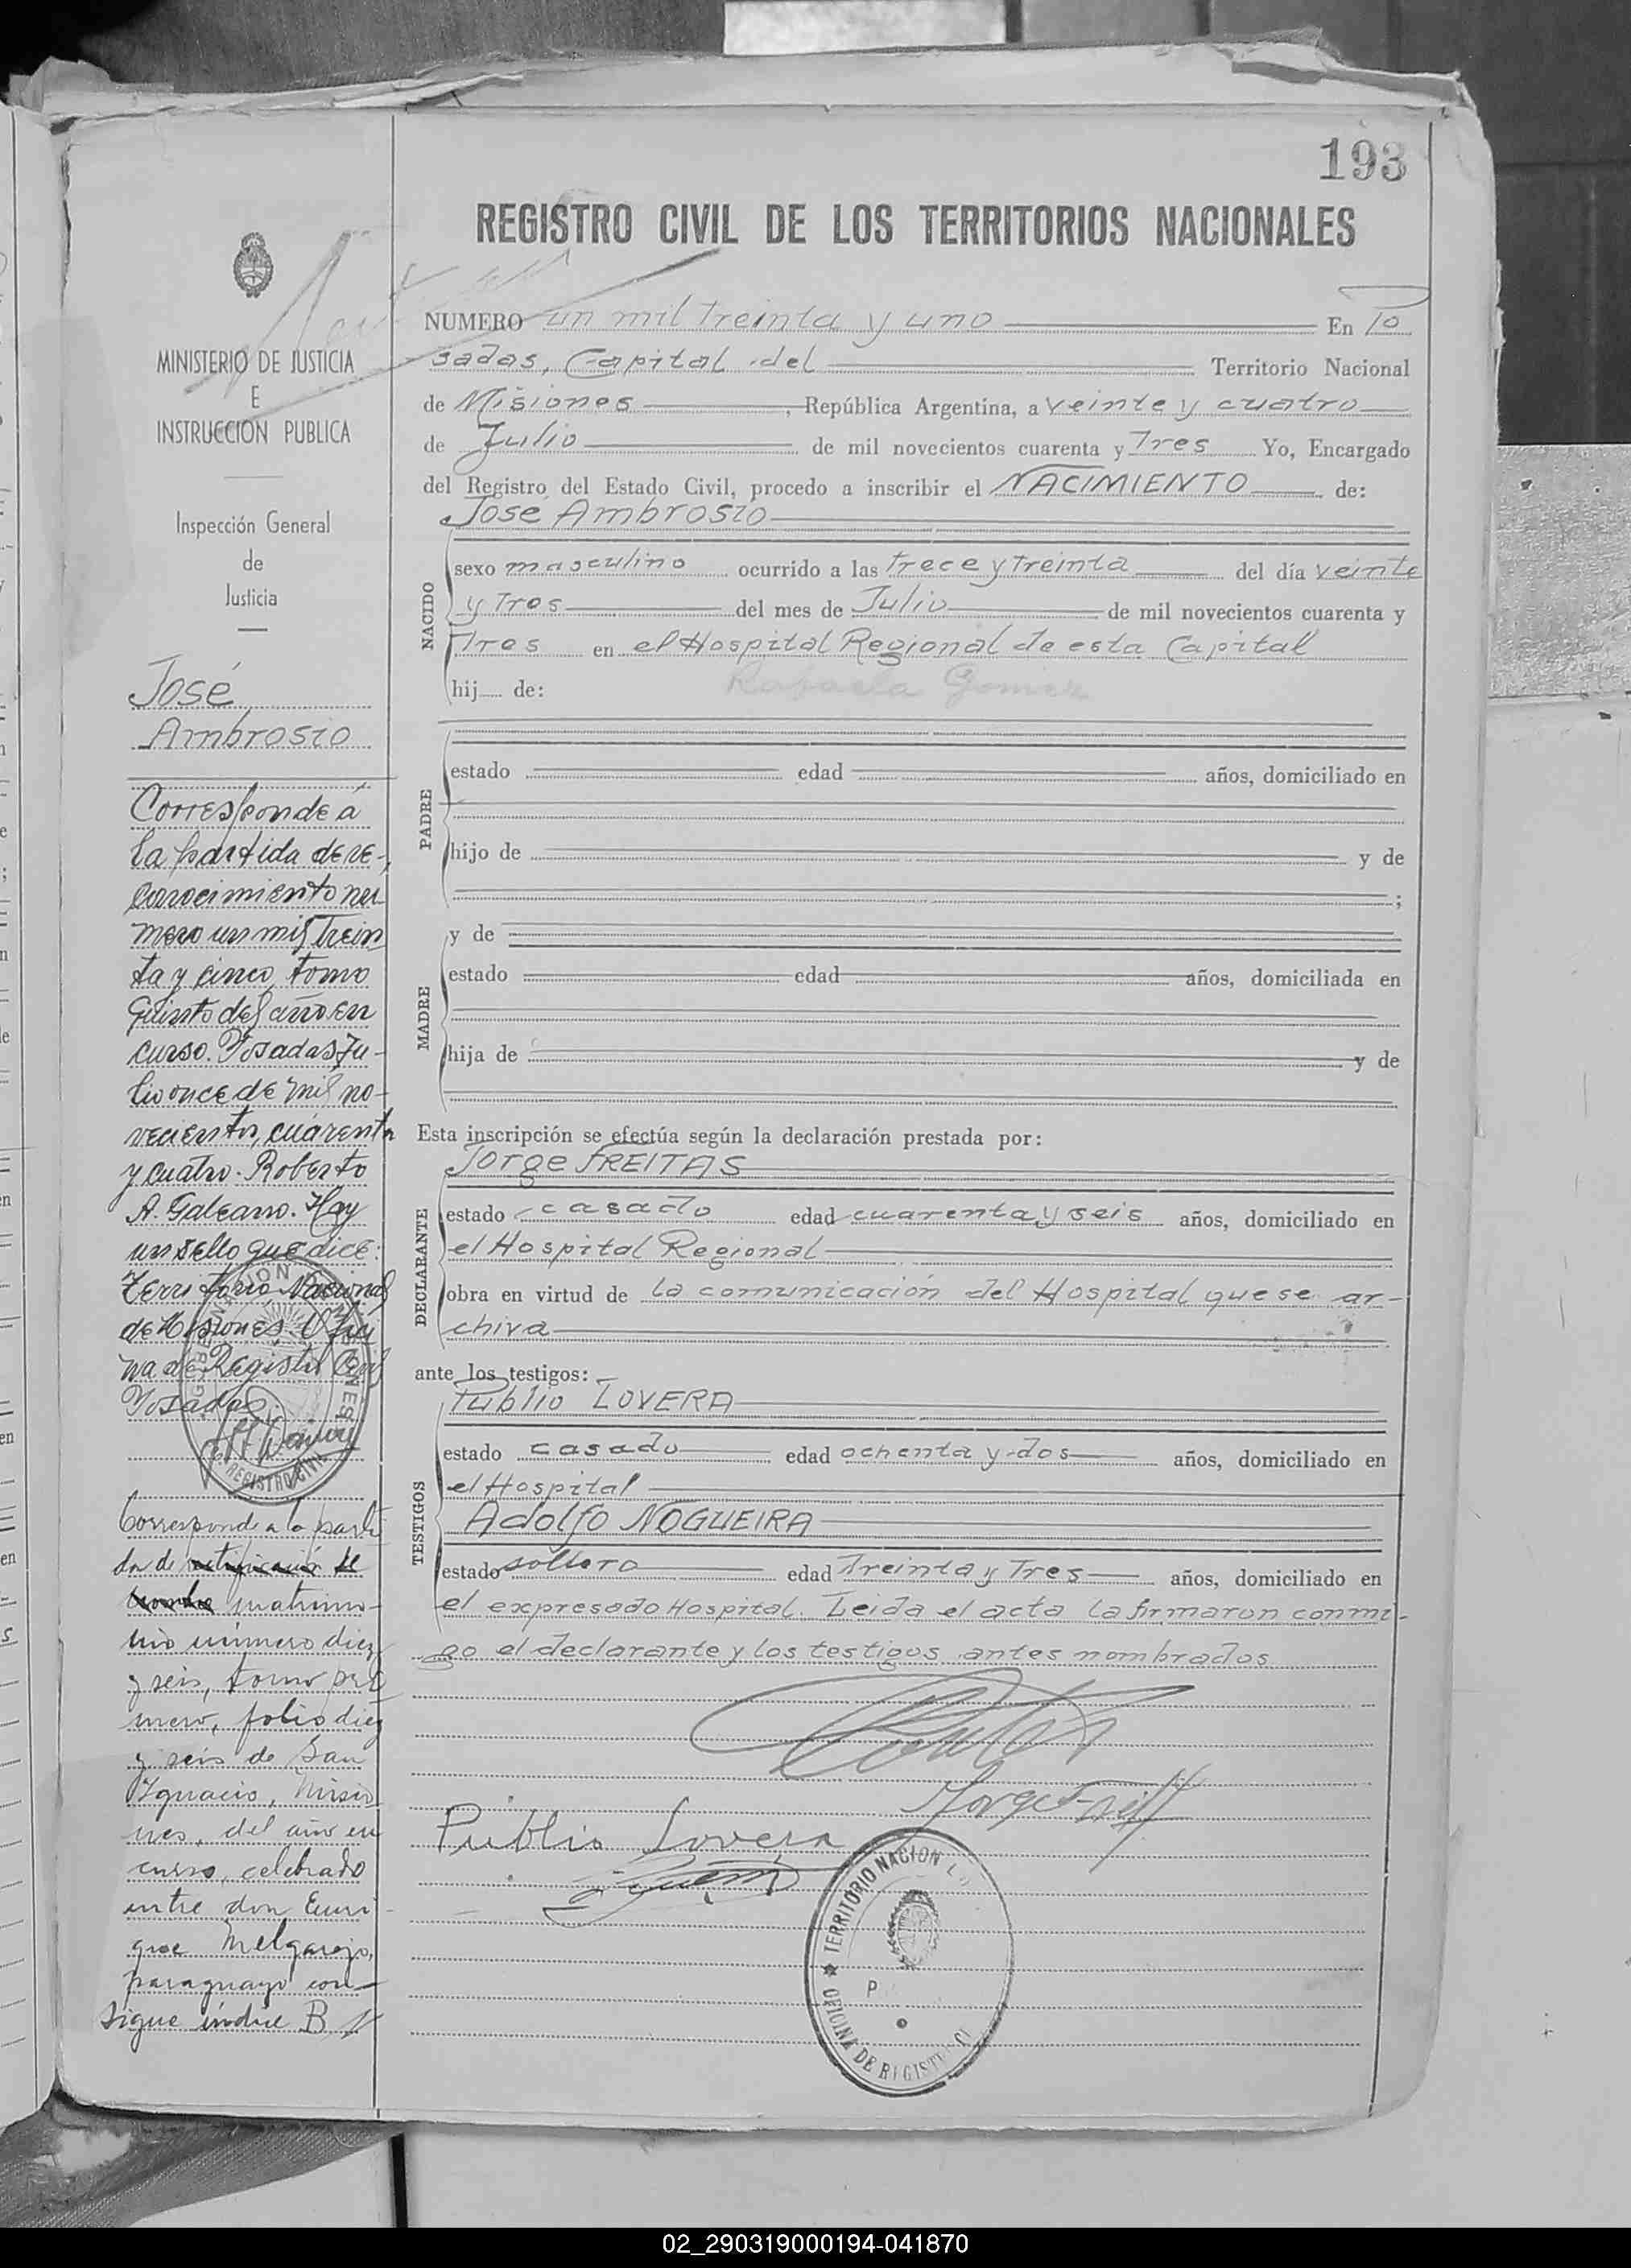 193
REGISTRO CIVIL DE LOS TERRITORIOS NACIONALES
MINISTERIO DE JUSTICIA
E
INSTRUCCION PUBLICA
Inspección General
de
Justicia
José
Ambrosio
Corresponde á
la partida de re-
conocimiento nu
mero un mil Trein
ta y cinco, tomo
Quinto del año en
curso. Posadas Ju-
lio once de mil no-
vecientos, cuarenta
y cuatro. Roberto
A. Galeano. Hay
un sello que dice:
Territorio Nacional
de Misiones. Ofici
na de Registro Civil
Posadas
REGISTRO CIVIL
Corresponde a la parti
da de rectificación de
nombre matrimo-
nio número diez
y seis, tomo pri
mero, folio diez
y seis de San
Ygnacio, Misio
nes, del año en
curso, celebrado
entre don Enri-
que Melgarejo,
paraguayo con
Sigue índice B
NUMERO un mil treinta y uno En Po
sadas, Capital del Territorio Nacional
de Misiones, República Argentina, a veinte y cuatro
de Julio de mil novecientos cuarenta y Tres Yo, Encargado
del Registro del Estado Civil, procedo a inscribir el NACIMIENTO de:
José Ambrosio
NACIDO
sexo masculino ocurrido a las trece y treinta del día veinte
y Tres del mes de Julio de mil novecientos cuarenta y
Tres en el Hospital Regional de esta Capital
hij de: Rafaela Gomez
PADRE
estado edad años, domiciliado en
hijo de y de
;
MADRE
y de
estado edad años, domiciliada en
hija de y de
Esta inscripción se efectúa según la declaración prestada por:
Jorge FREITAS
DECLARANTE
estado casado edad cuarenta y seis años, domiciliado en
el Hospital Regional
obra en virtud de la comunicación del Hospital que se ar-
chiva
ante los testigos:
Publio LOVERA
TESTIGOS
estado casado edad ochenta y dos años, domiciliado en
el Hospital
Adolfo NOGUEIRA
estado soltero edad Treinta y Tres años, domiciliado en
el expresado Hospital. Leida el acta la firmaron conmi-
go el declarante y los testigos antes nombrados
Publio Lovera
TERRITORIO NACION L
P
OFICINA DE REGIST CI
02_290319000194-041870